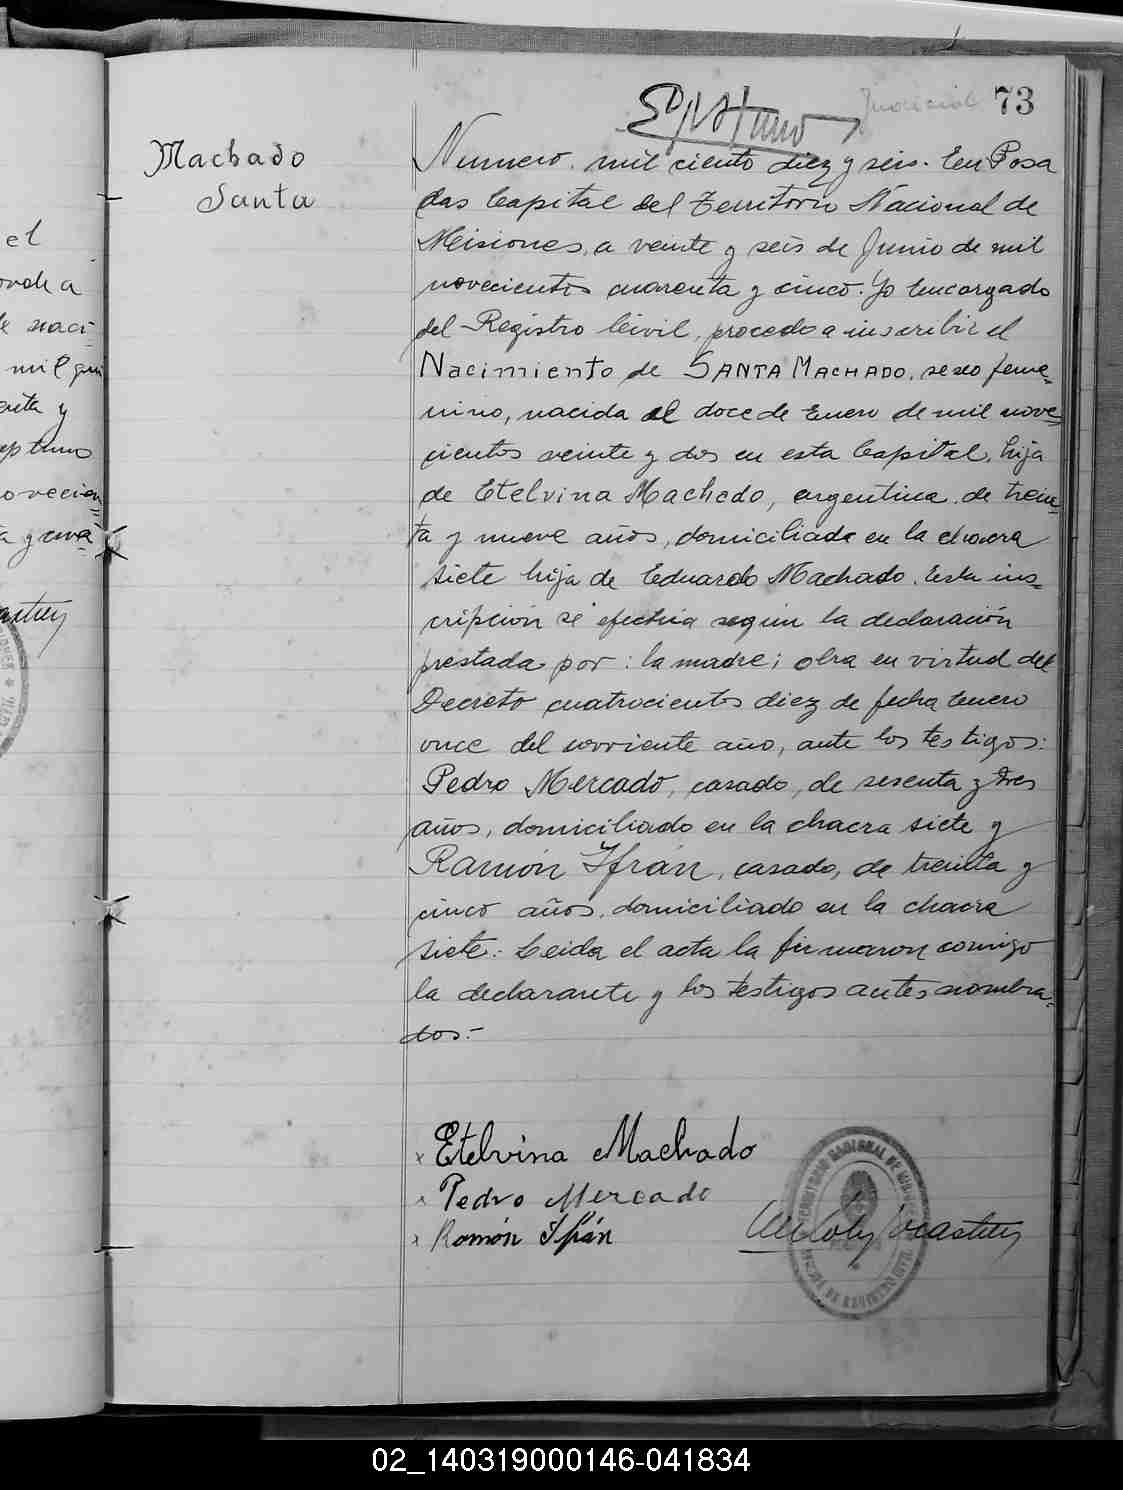 Judicial 73
Machado
Santa
Numero mil ciento diez y seis. En Posa
das Capital del Territorio Nacional de
Misiones, a veinte y seis de Junio de mil
novecientos cuarenta y cinco. Yo Encargado
del Registro Civil, procedo a inscribir el
Nacimiento de SANTA MACHADO, sexo feme=
nino, nacida el doce de Enero de mil nove=
cientos veinte y dos en esta Capital, hija
de Etelvina Machado, argentina, de trein=
ta y nueve años, domiciliada en la chacra
siete hija de Eduardo Machado. Esta ins=
cripción se efectúa según la declaración
prestada por: la madre; obra en virtud del
Decreto cuatrocientos diez de fecha Enero
once del corriente año, ante los testigos:
Pedro Mercado, casado, de sesenta y tres
años, domiciliado en la chacra siete y
Ramón Ifrán, casado, de treinta y
cinco años, domiciliado en la chacra
siete: Leida el acta la firmaron comigo
la declarante y los testigos antes nombra=
dos:-
x Etelvina Machado
x Pedro Mercado
x Ramón Ifrán
TERRITORIO NACIONAL DE MISIONES
el
mil
y
02_140319000146-041834